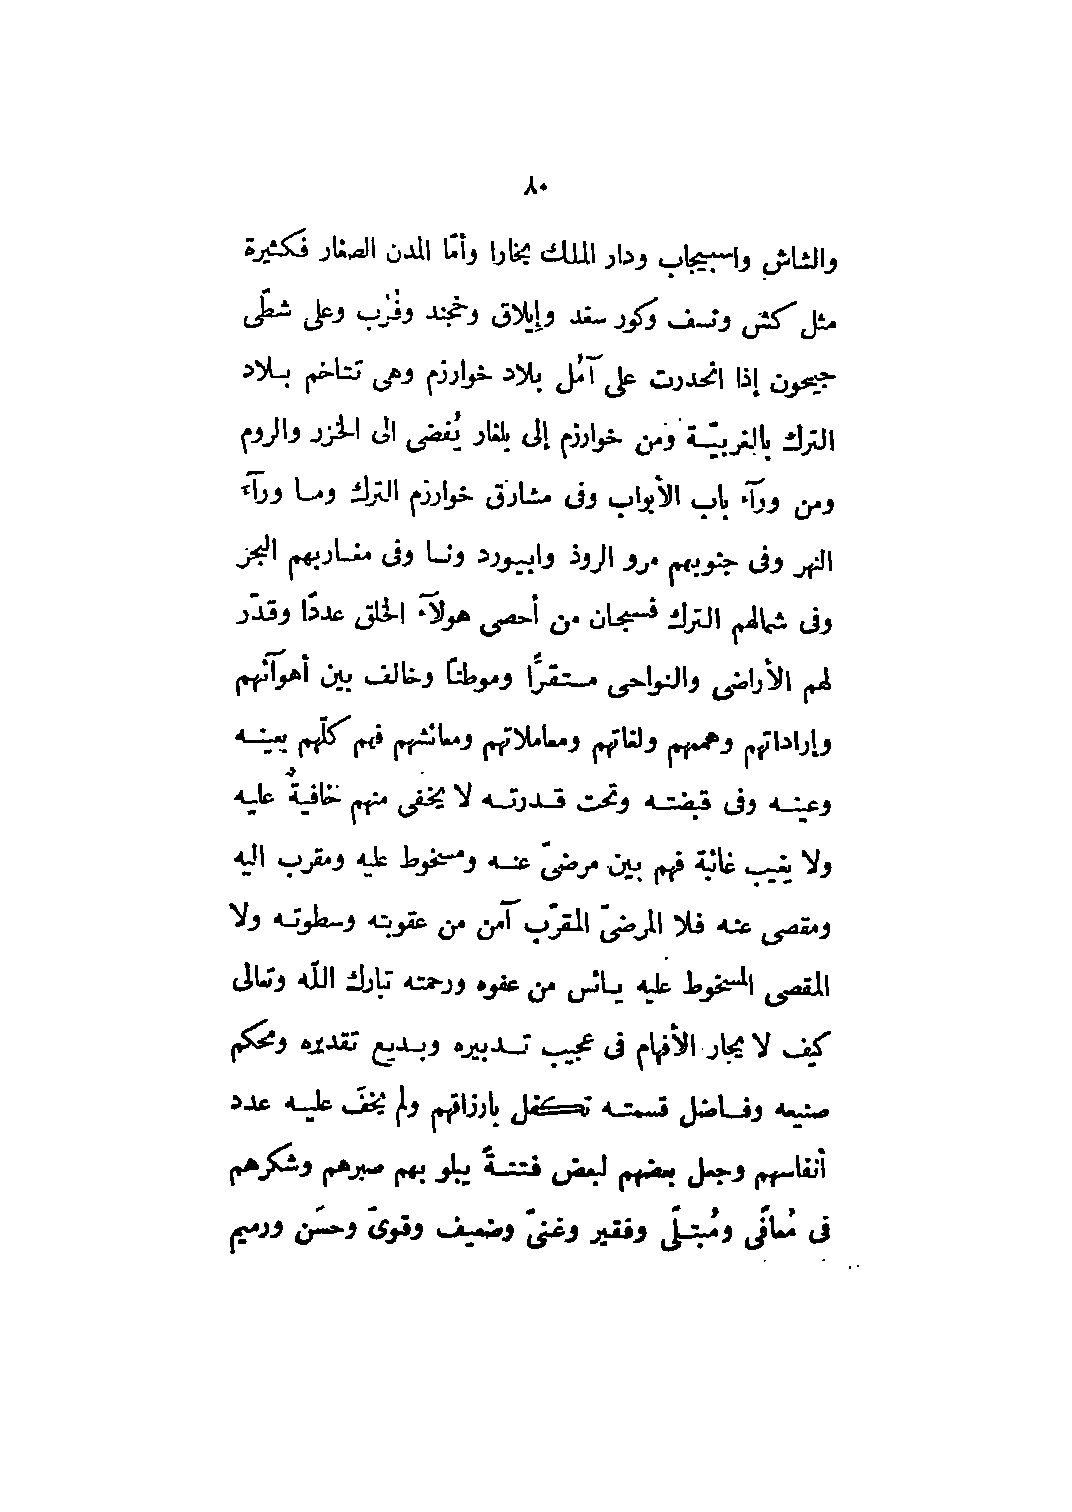 ٨٠
والشاش واسبيجاب ودار الملك بخارا وأمّا المدن الصغار فكثيرة
مثل كش ونسف وكور سغد وإيلاق وخجند وفُرَب وعلى شطّى
جيحون إذا انحدرت على آمُل بلاد خوارزم وهى تتاخم بلاد
الترك بالغربيّة ومن خوارزم إلى بلغار يُفضى الى الخزر والروم
ومن ورآء باب الأبواب وفى مشارق خوارزم الترك وما ورآء
النهر وفى جنوبهم مرو الروذ وابيورد ونسا وفى مغاربهم البجز
وفى شمالهم الترك فسبحان من أحصى هولآء الخلق عددًا وقدّر
لهم الأراضى والنواحى مستقرًّا وموطنًا وخالف بين أهوآئهم
وإراداتهم وهممهم ولغاتهم ومعاملاتهم ومعائشهم فهم كلّهم بعينه
وعينه وفى قبضته وتحت قدرته لا يخفى منهم خافيةٌ عليه
ولا يغيب غائبة فهم بين مرضىّ عنه ومسخوط عليه ومقرب اليه
ومقصى عنه فلا المرضىّ المقرّب آمن من عقوبته وسطوته ولا
المقصى المسخوط عليه يائس من عفوه ورحمته تبارك اللّه وتعالى
كيف لا يحار الأفهام فى عجيب تدبيره وبديع تقديره ومحكم
صنيعه وفاضل قسمته تكفل بارزاقهم ولم يخفَ عليه عدد
أنفاسهم وجعل بعضهم لبعض فتنةً يبلو بهم صبرهم وشكرهم
فى مُعافًى ومُبتلًى وفقير وغنىّ وضعيف وقوىّ وحسَن ورميم